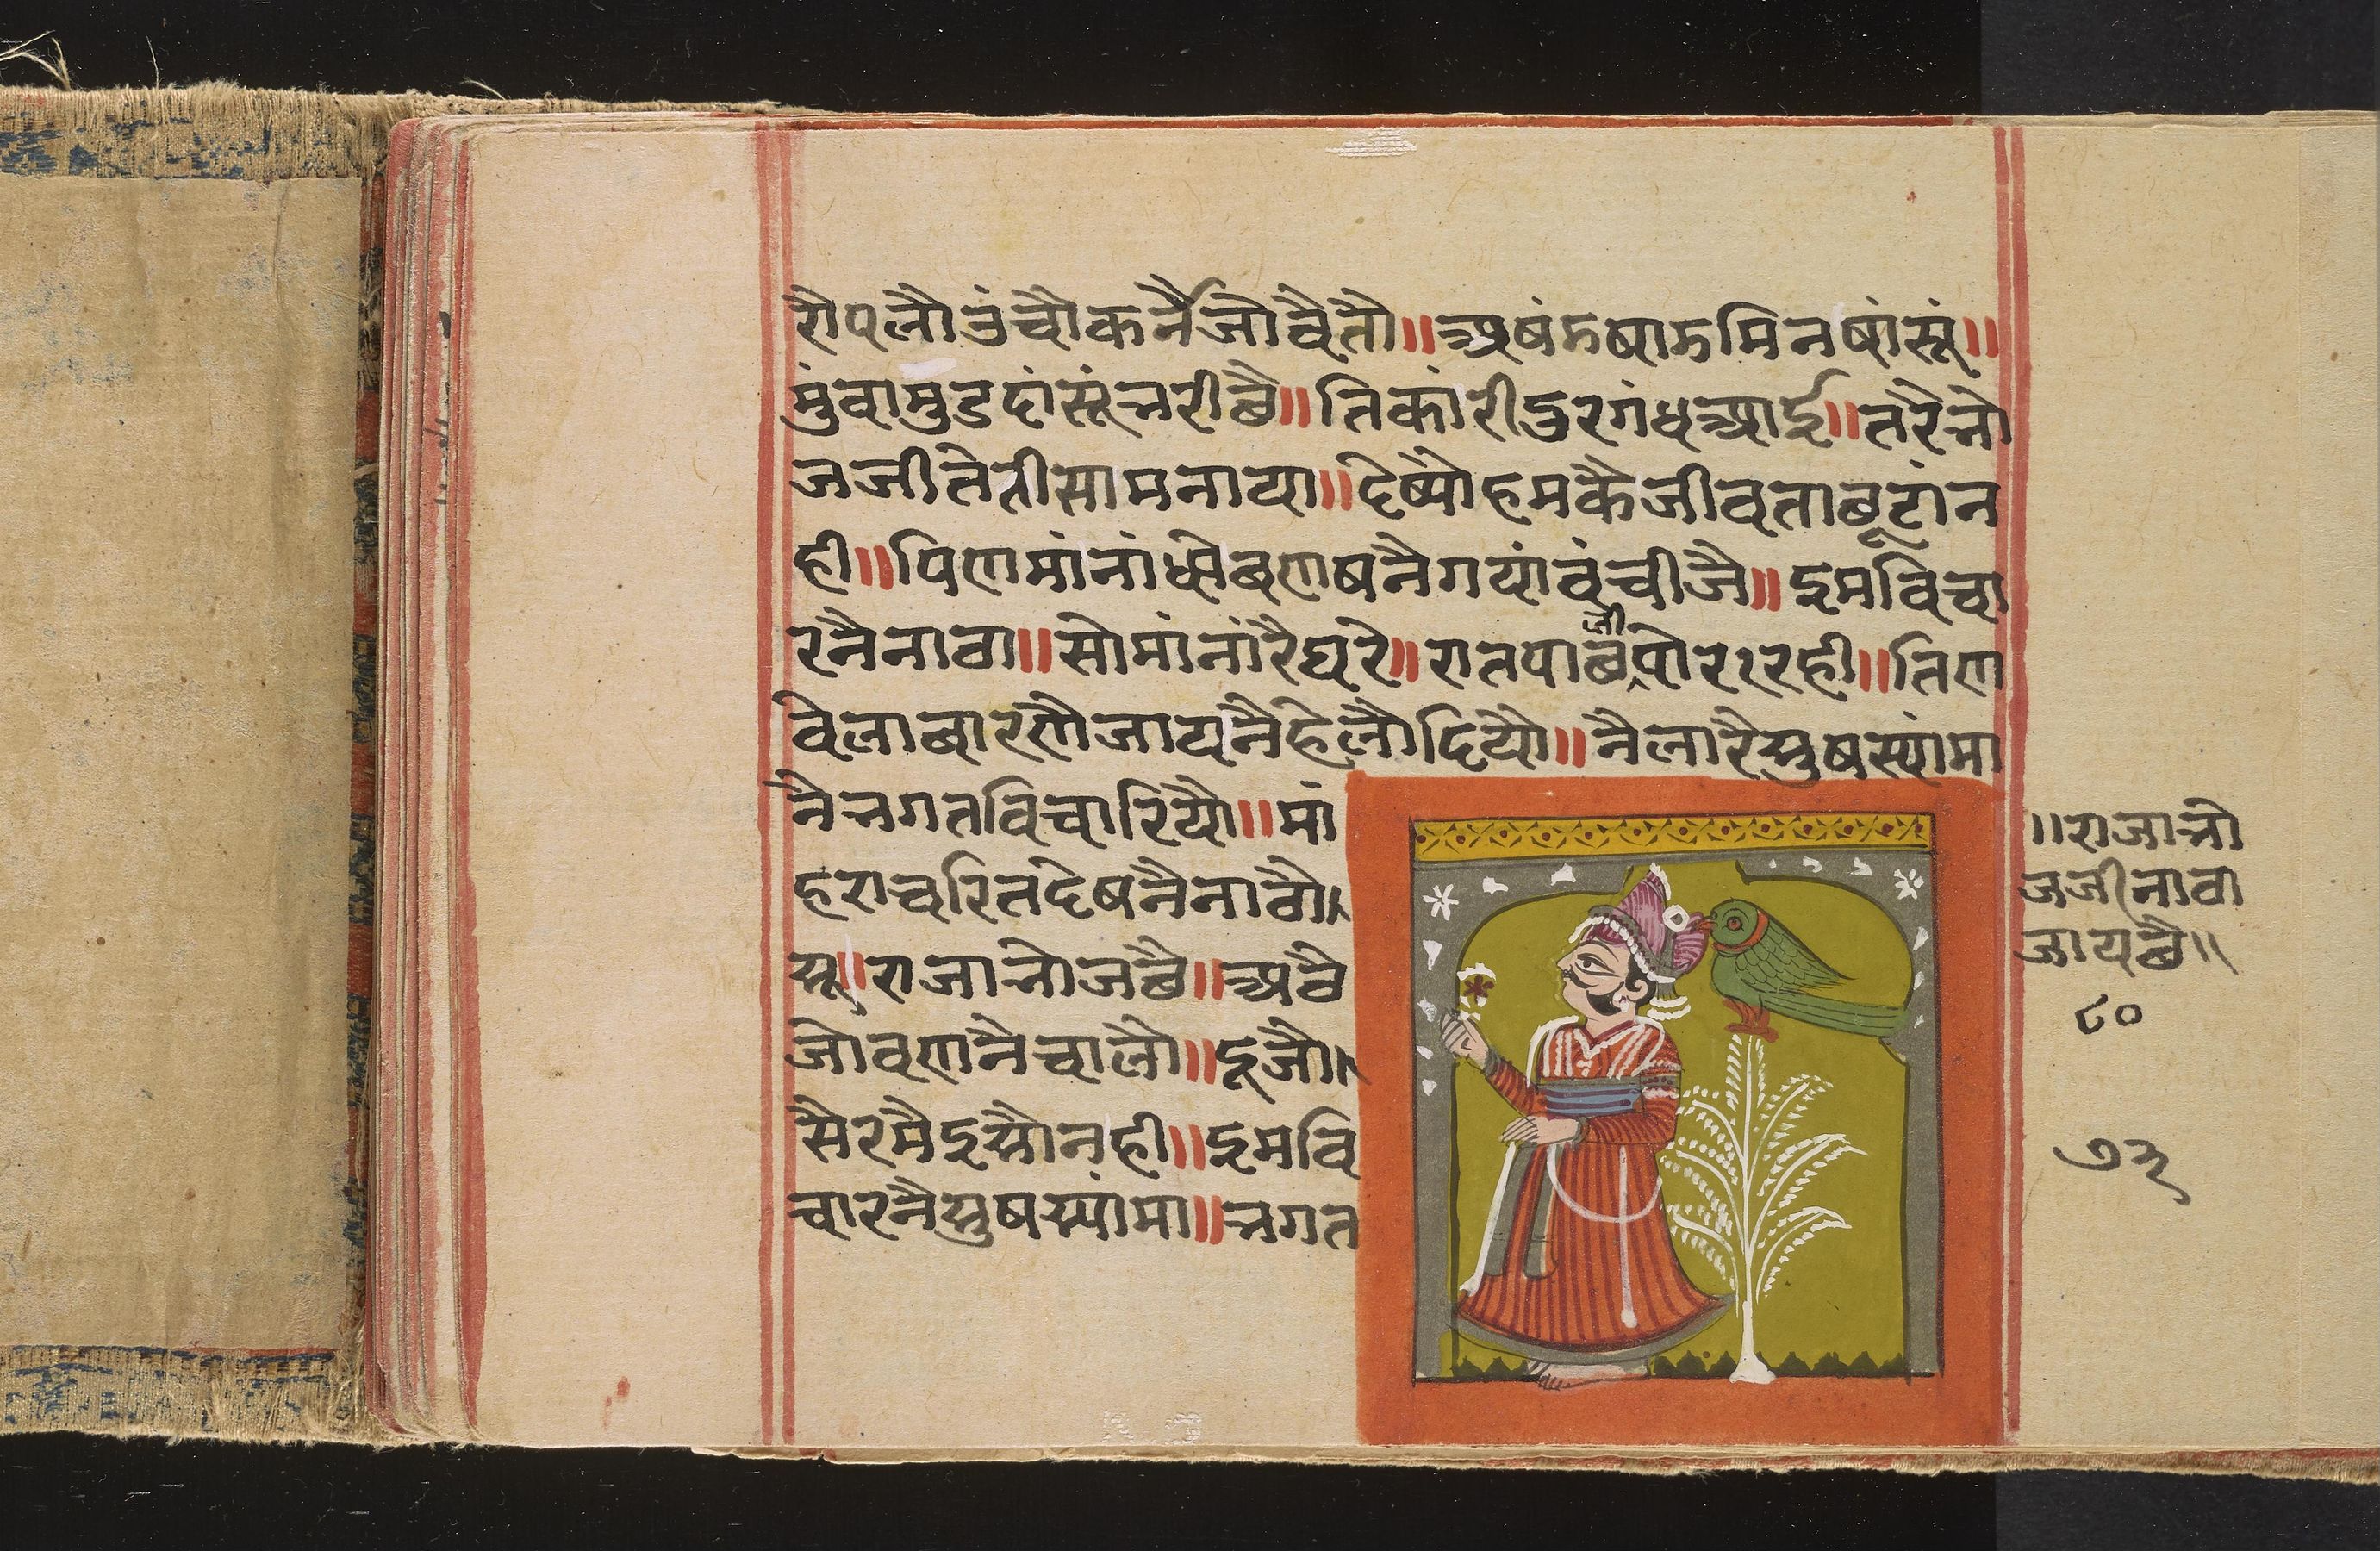 रौपलौउंचौकर्नैजोवैतौ॥अषंमषाममिनषांसूं॥
मुंवामुडदांसूंभरीछै॥तिकांरीदुरगंधआई॥तरैभो
जजीतेत्रीसामनाया॥देष्यौहमकैजीवताछूटांन
ही॥पिणमांनांधोछणषनैगयांवंचीजै॥इमविचा
रनैनावा॥सोमांनांरैघरे॥रातपाछलीपोर१रही॥तिण
वेलाबारणौजायनैहेलौदियौ॥नैलारैसुषस्यांमा
नैभगतविचारियौ॥मां
हराचरितदेषनैनावौ॥
सू॥राजाभोजछै॥अवै
जोवणनैचालौ॥दूजौ॥
सैरमैइसौनही॥इमवि
चारनैसुषस्यांमा॥भगत
॥राजाभो
जजीनावा
जायछै॥
८०
७३